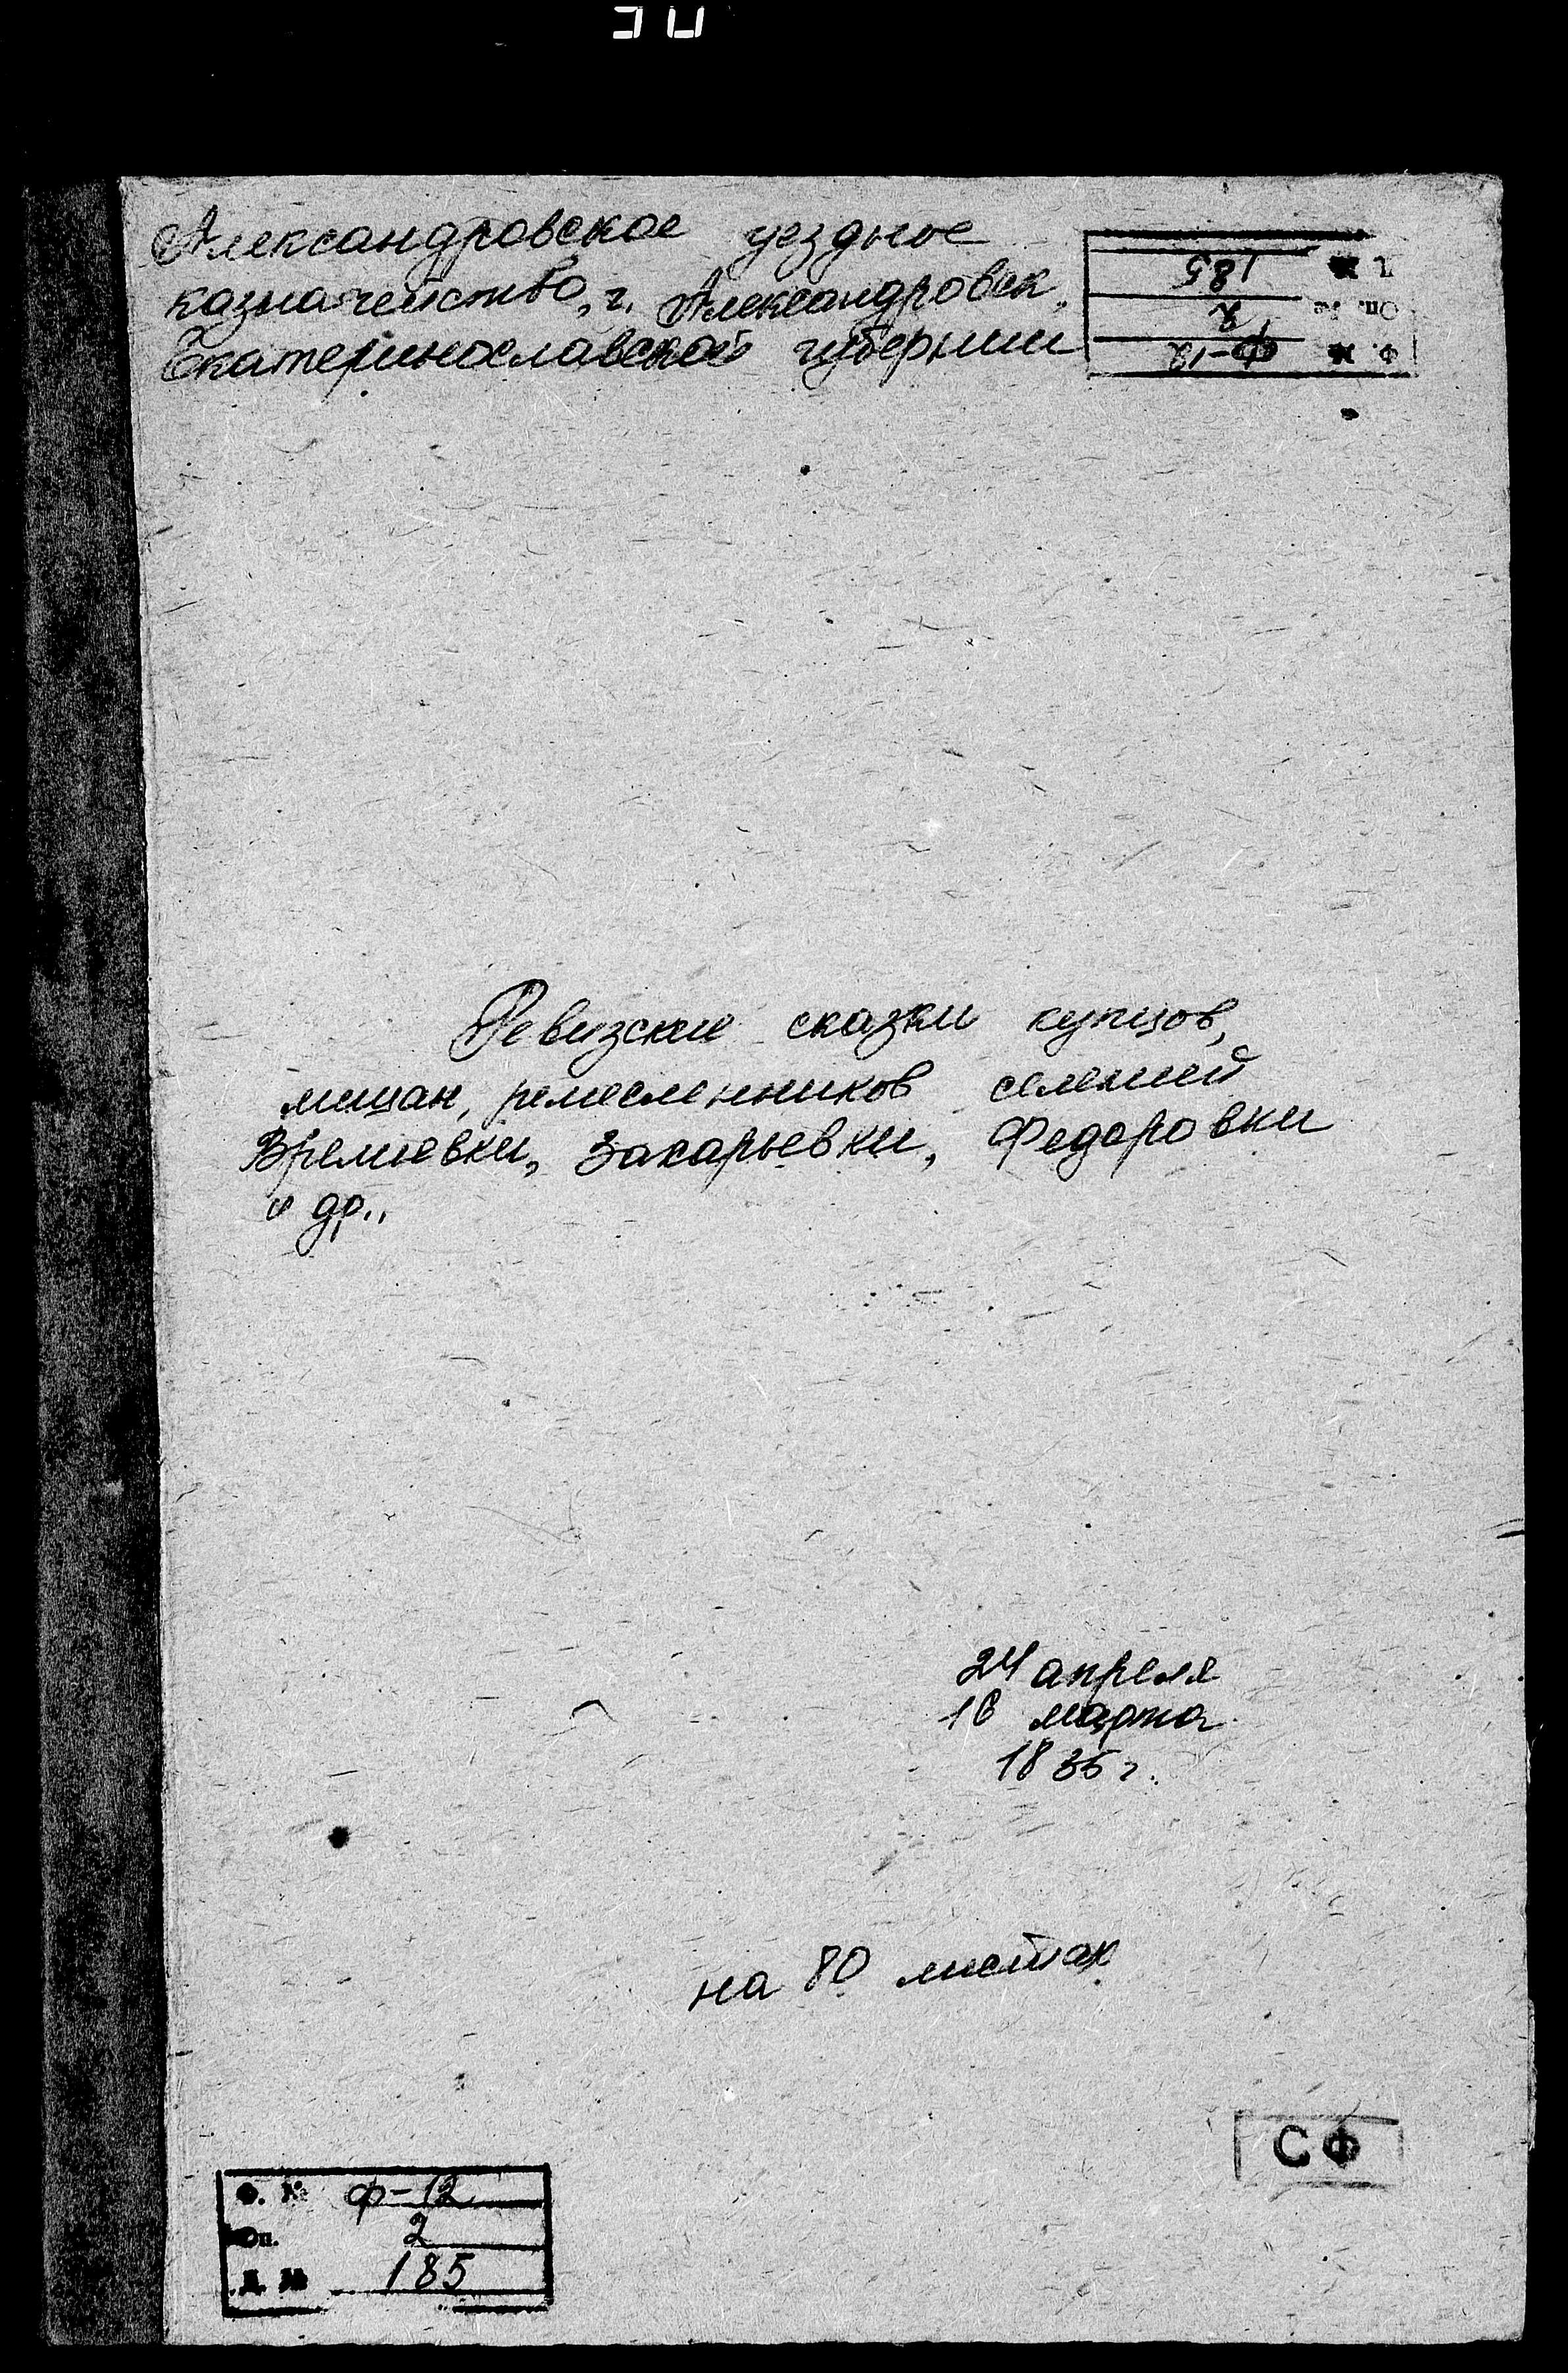 Александровское уездное
казначейство, г. Александровск,
Екатеринославской губернии
Д. № 185
Оп. № 2
Ф. № Ф-12
Ревизские сказки купцов,
мещан, ремесленников селений
Времиевки, Захарьевки, Федоровки
и др.,
24 апреля
16 марта
1835 г.
на 80 листах
СФ
Ф. № Ф-12
Оп. 2
Д. № 185